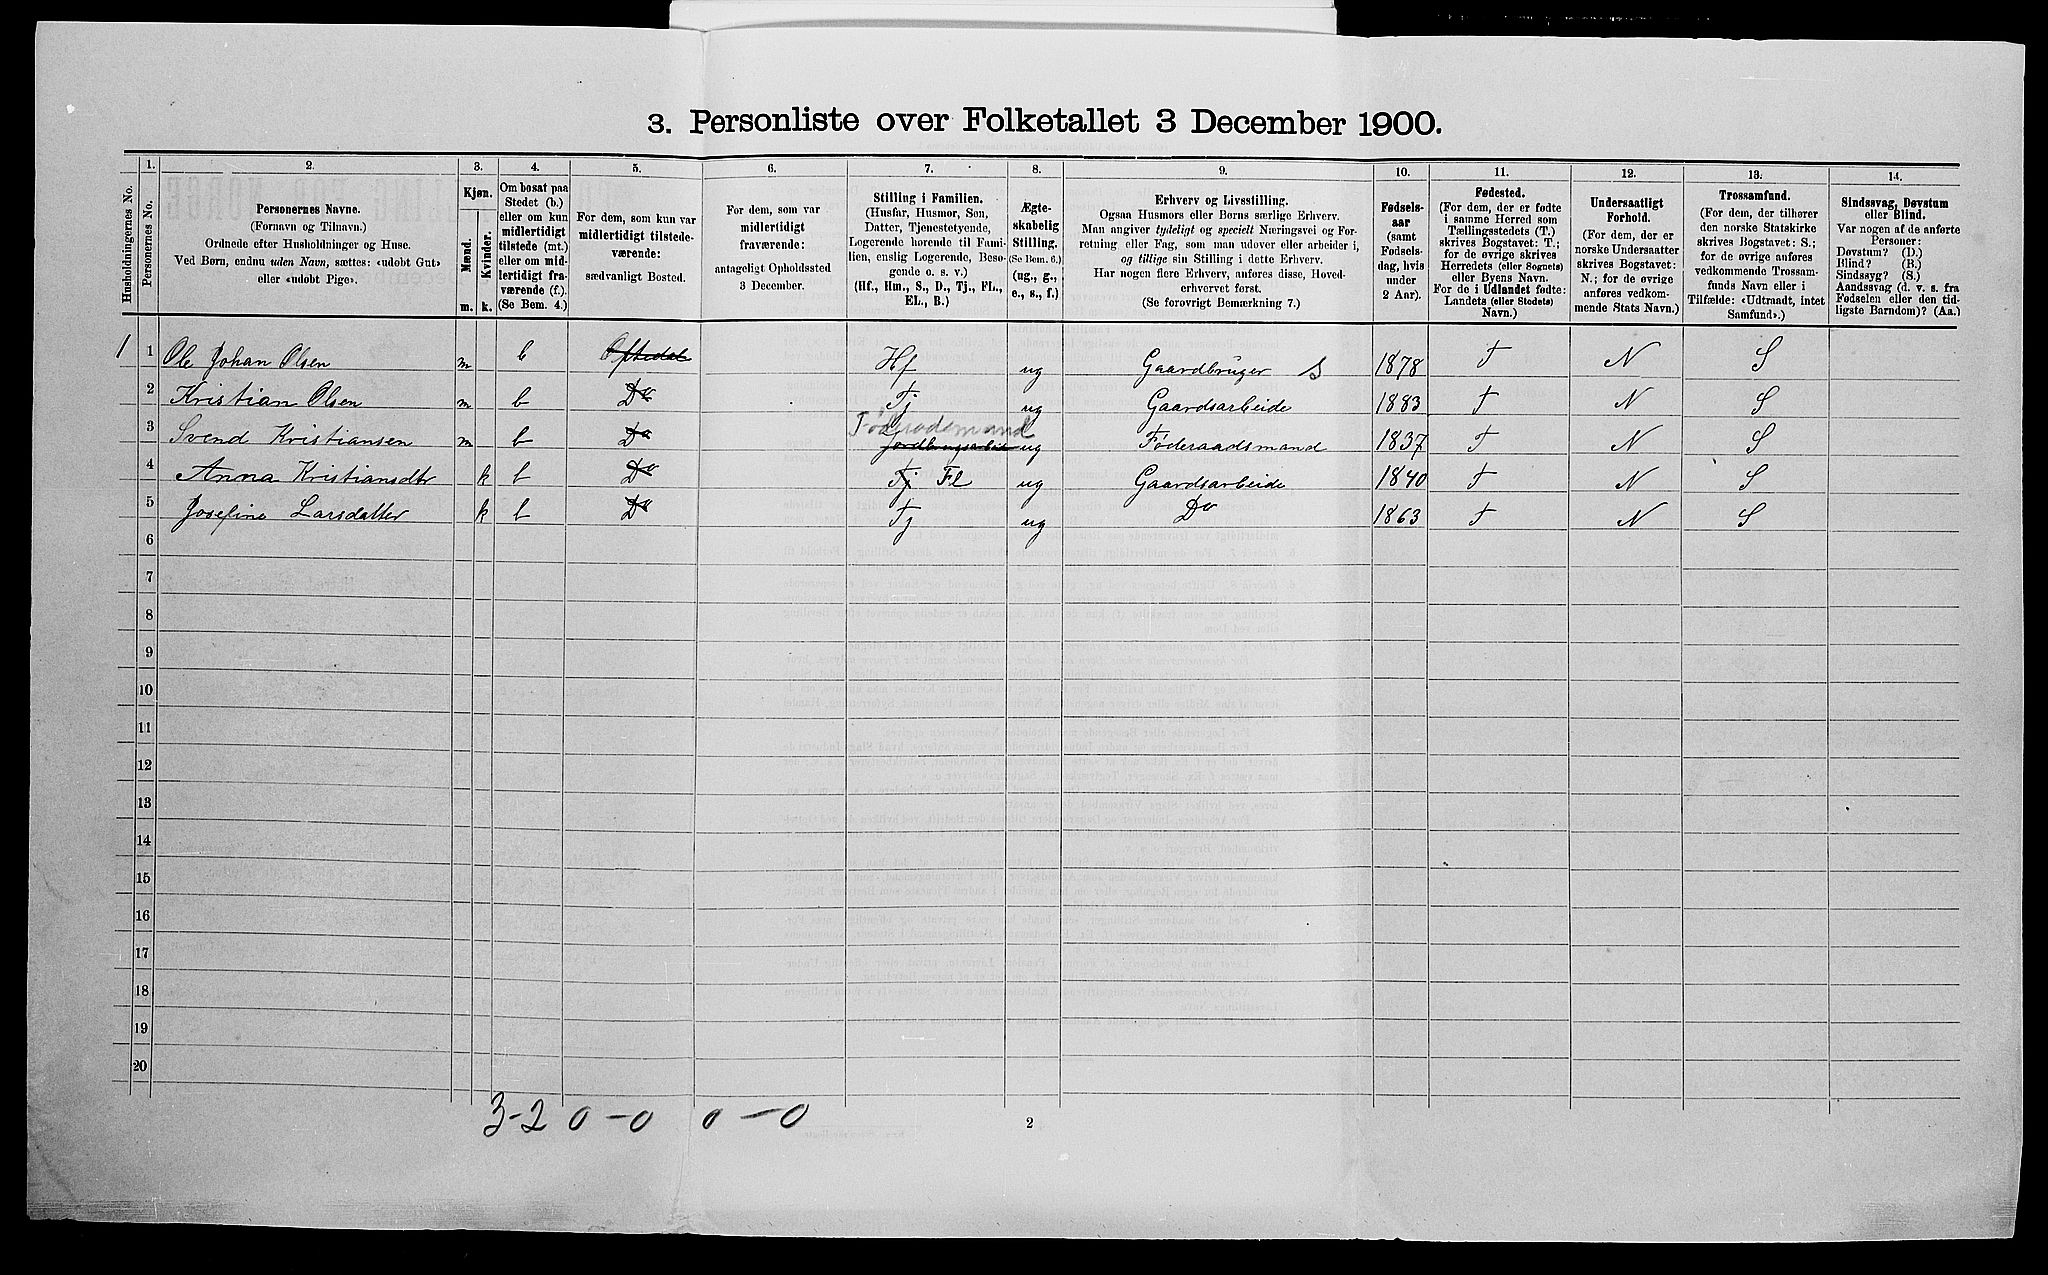 3. Personliste over Folketallet 3 December 1900.
1. 2. 3. 4. 5. 6. 7. 8. 9. 10. 11. 12. 13. 14.
Husholdningernes No.
Personernes No.
Personernes Navne.
(Fornavn og Tilnavn.)
Ordnede efter Husholdninger og Huse.
Ved Børn, endnu uden Navn, sættes: «udøbt Gut»
eller «udøbt Pige».
Kjøn.
Mænd.
Kvinder.
m. k.
Om bosat paa
Stedet (b.)
eller om kun
midlertidigt
tilstede (mt.)
eller om mid-
lertidigt fra-
værende (f.).
(Se Bem. 4.)
For dem, som kun var
midlertidigt tilstede-
værende:
sædvanligt Bosted.
For dem, som var
midlertidigt
fraværende:
antageligt Opholdssted
3 December.
Stilling i Familien.
(Husfar, Husmor, Søn,
Datter, Tjenestetyende,
Logerende hørende til Fami-
lien, enslig Logerende, Besø-
gende o. s. v.)
(Hf., Hm., S., D., Tj., FL.,
EL., B.)
Ægte-
skabelig
Stilling.
(Se Bem. 6.)
(ug., g.,
e., s., f.)
Erhverv og Livsstilling.
Ogsaa Husmors eller Børns særlige Erhverv.
Man angiver tydeligt og specielt Næringsvei og For-
retning eller Fag, som man udøver eller arbeider i,
og tillige sin Stilling i dette Erhverv.
Har nogen flere Erhverv, anføres disse, Hoved-
erhvervet først.
(Se forøvrigt Bemærkning 7.)
Fødsels-
aar
(samt
Fødsels-
dag, hvis
under
2 Aar).
Fødested.
(For dem, der er fødte
i samme Herred som
Tællingsstedets (T.)
skrives Bogstavet: T.;
for de øvrige skrives
Herredets (eller Sognets)
eller Byens Navn.
For de i Udlandet fødte:
Landets (eller Stedets)
Navn.)
Undersaatligt
Forhold.
(For dem, der er
norske Undersaatter
skrives Bogstavet:
N.; for de øvrige
anføres vedkom-
mende Stats Navn.)
Trossamfund.
(For dem, der tilhører
den norske Statskirke
skrives Bogstavet: S.;
for de øvrige anføres
vedkommende Trossam-
funds Navn eller i
Tilfælde: «Udtraadt, intet
Samfund».)
Sindssvag, Døvstum
eller Blind.
Var nogen af de anførte
Personer:
Døvstum? (D.)
Blind? (B.)
Sindssyg? (S.)
Aandssvag (d. v. s. fra
Fødselen eller den tid-
ligste Barndom)? (Aa.)
1 1 Ole Johan Olsen m b Oftedal Hf ug Gaardbruger S 1878 T N S
2 Kristian Olsen m b Do Tj ug Gaardsarbeide 1883 T N S
3 Svend Kristiansen m b Do Føderaadsmand ug Føderaadsmand 1837 T N S
4 Anna Kristiansdtr k b Do Tj Fl ug Gaardsarbeide 1840 T N S
5 Josefine Larsdatter k b Do Tj ug Do 1863 T N S
6
7
8
9
10
11
12
13
14
15
16
17
18
19
20
3-2 0-0 0-0
2